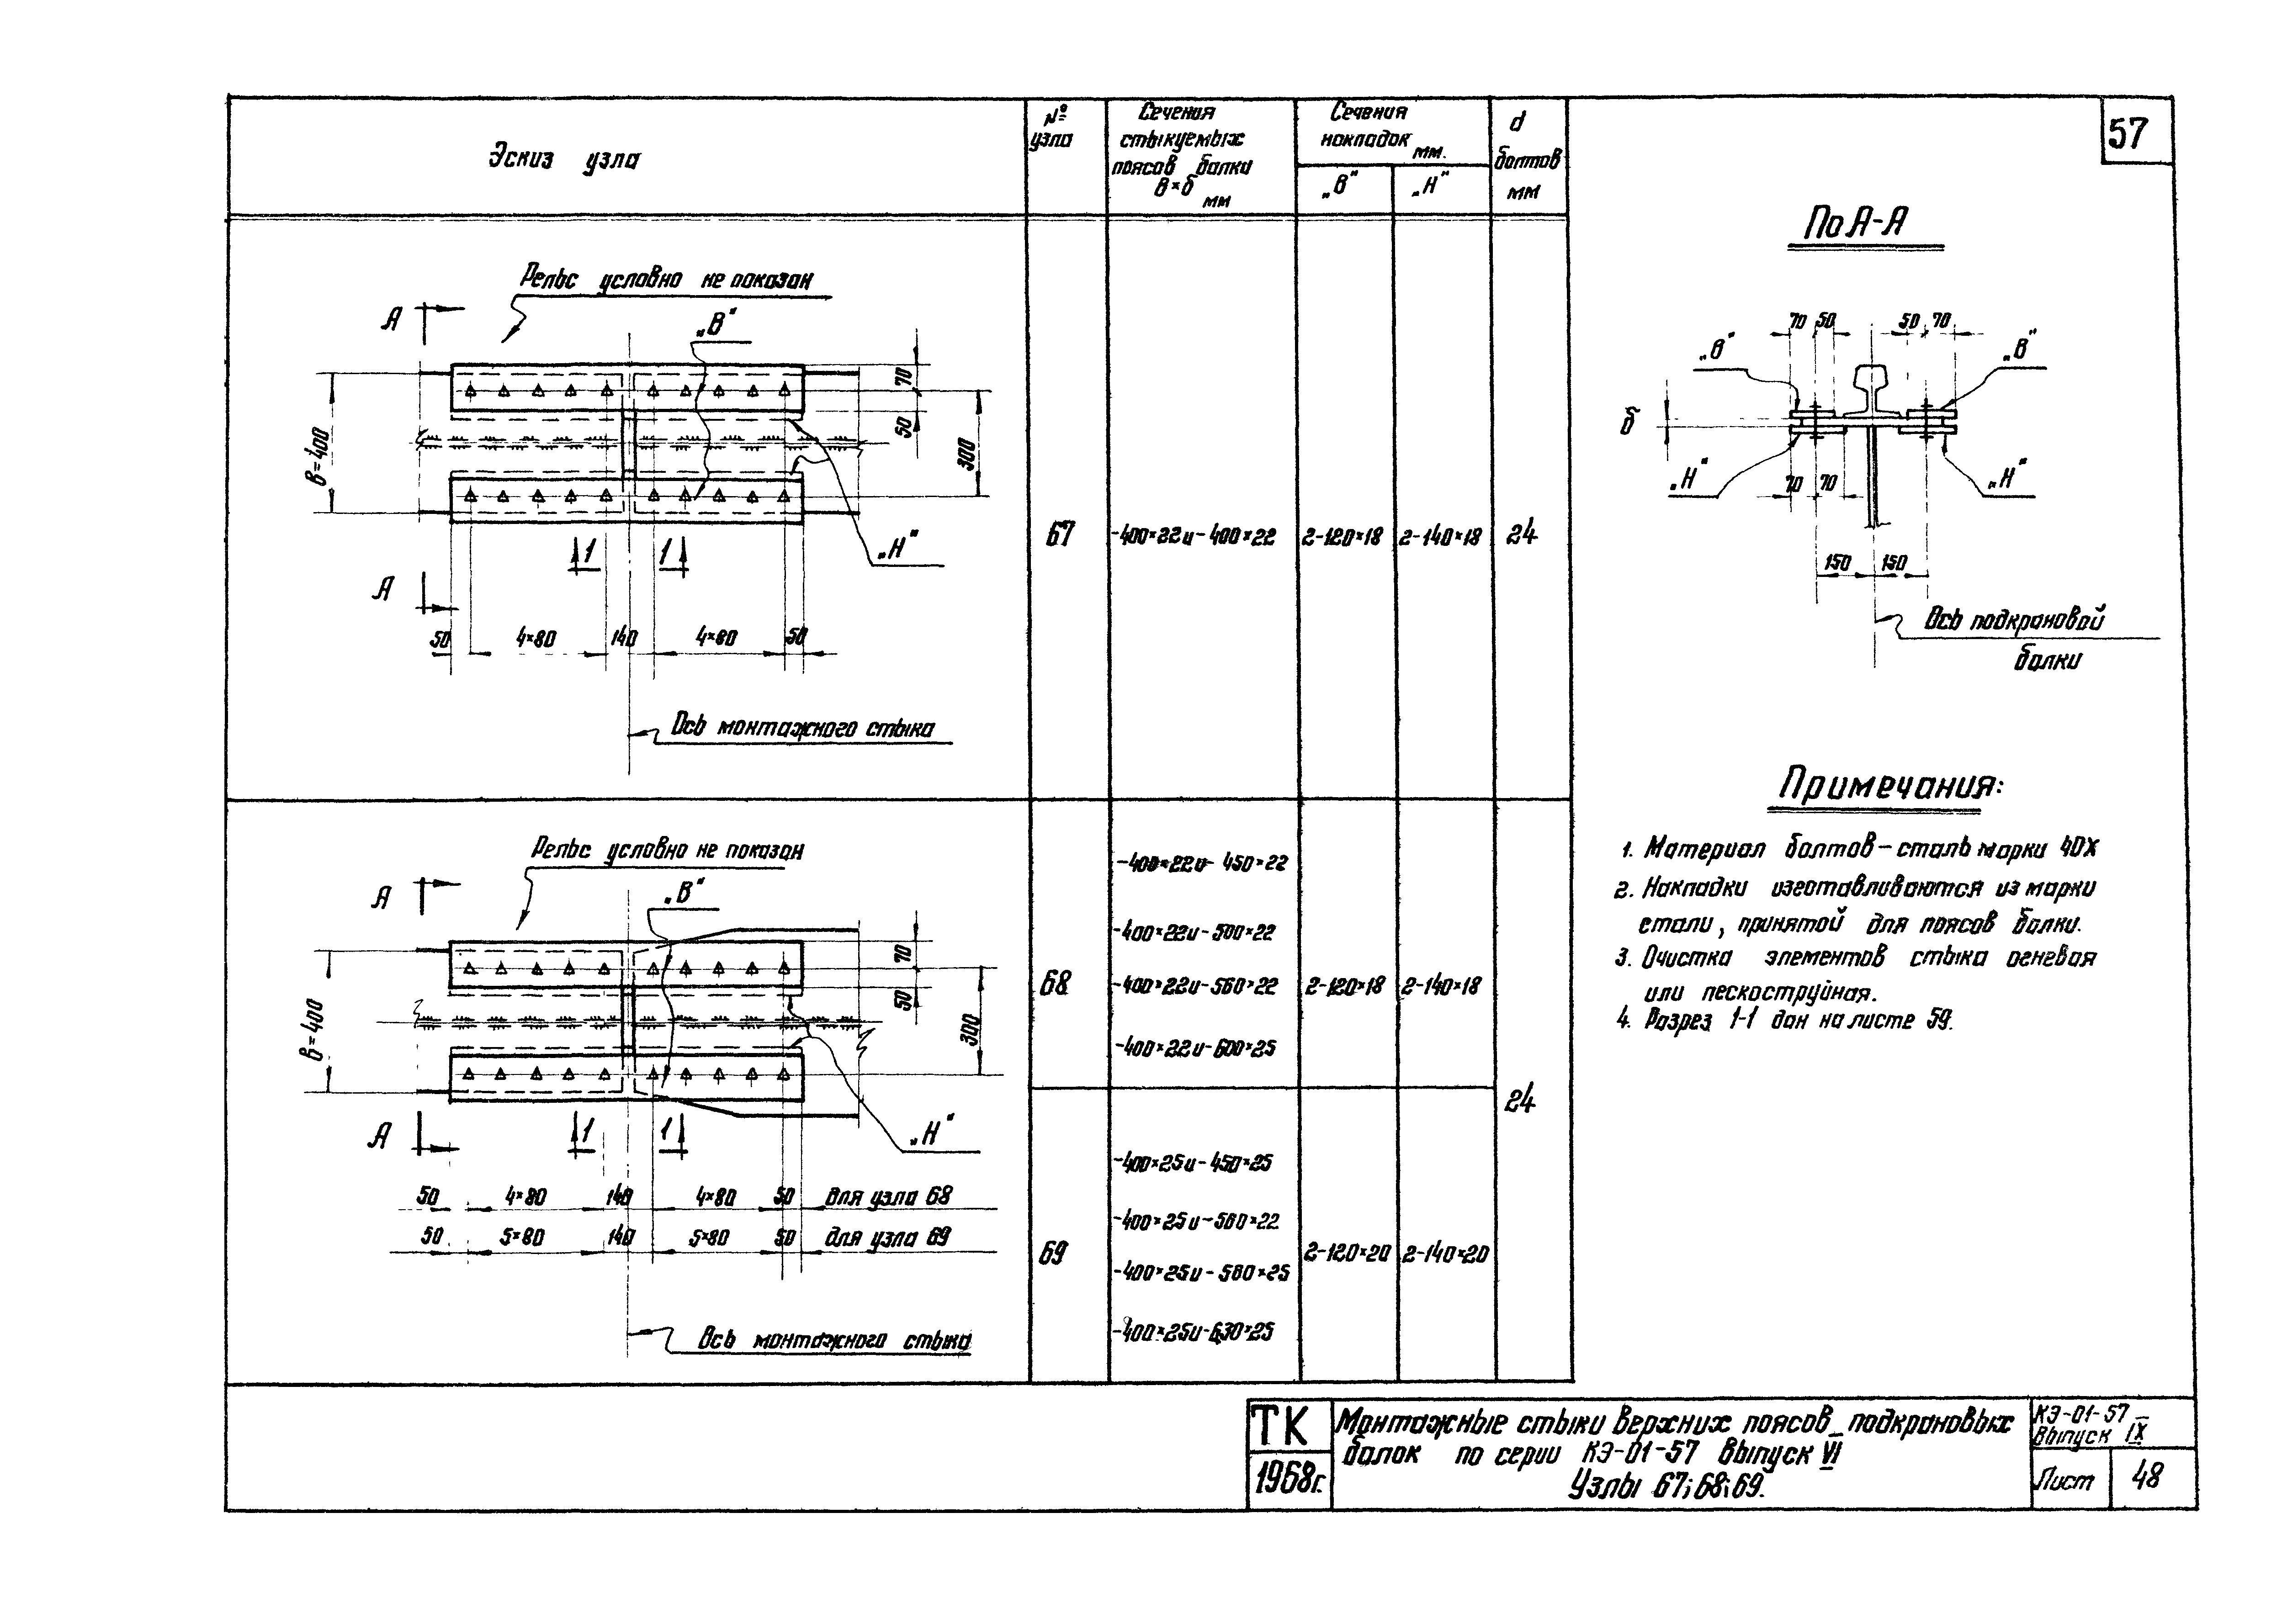 57
Эскиз узла
№ узла
Сечения
стыкуемых
поясов балки
в×б
мм
Сечения
накладок
мм.
„В"
„Н"
d
болтов
мм
Рельс условно не показан
А
„В"
70
50
300
в=400
„Н"
1
1
А
50
4×80
140
4×80
50
Ось монтажного стыка
67
-400×22 и -400×22
2-120×18
2-140×18
24
Рельс условно не показан
А
„В"
70
50
300
в=400
„Н"
1
1
А
50
4×80
140
4×80
50
для узла 68
50
5×80
140
5×80
50
для узла 69
Ось монтажного стыка
68
-400×22 и -450×22
-400×22 и -500×22
-400×22 и -560×22
-400×22 и -600×25
2-120×18
2-140×18
24
69
-400×25 и -450×25
-400×25 и -560×22
-400×25 и -560×25
-400×25 и -630×25
2-120×20
2-140×20
По А-А
70
50
50
70
„В"
„В"
б
„Н"
70
70
„Н"
150
150
Ось подкрановой
балки
Примечания:
1. Материал болтов - сталь марки 40Х
2. Накладки изготавливаются из марки
стали, принятой для поясов балки.
3. Очистка элементов стыка огневая
или пескоструйная.
4. Разрез 1-1 дан на листе 59.
ТК
1968г.
Монтажные стыки верхних поясов подкрановых
балок по серии КЭ-01-57 выпуск VI
Узлы 67; 68; 69.
КЭ-01-57
Выпуск IX
Лист
48